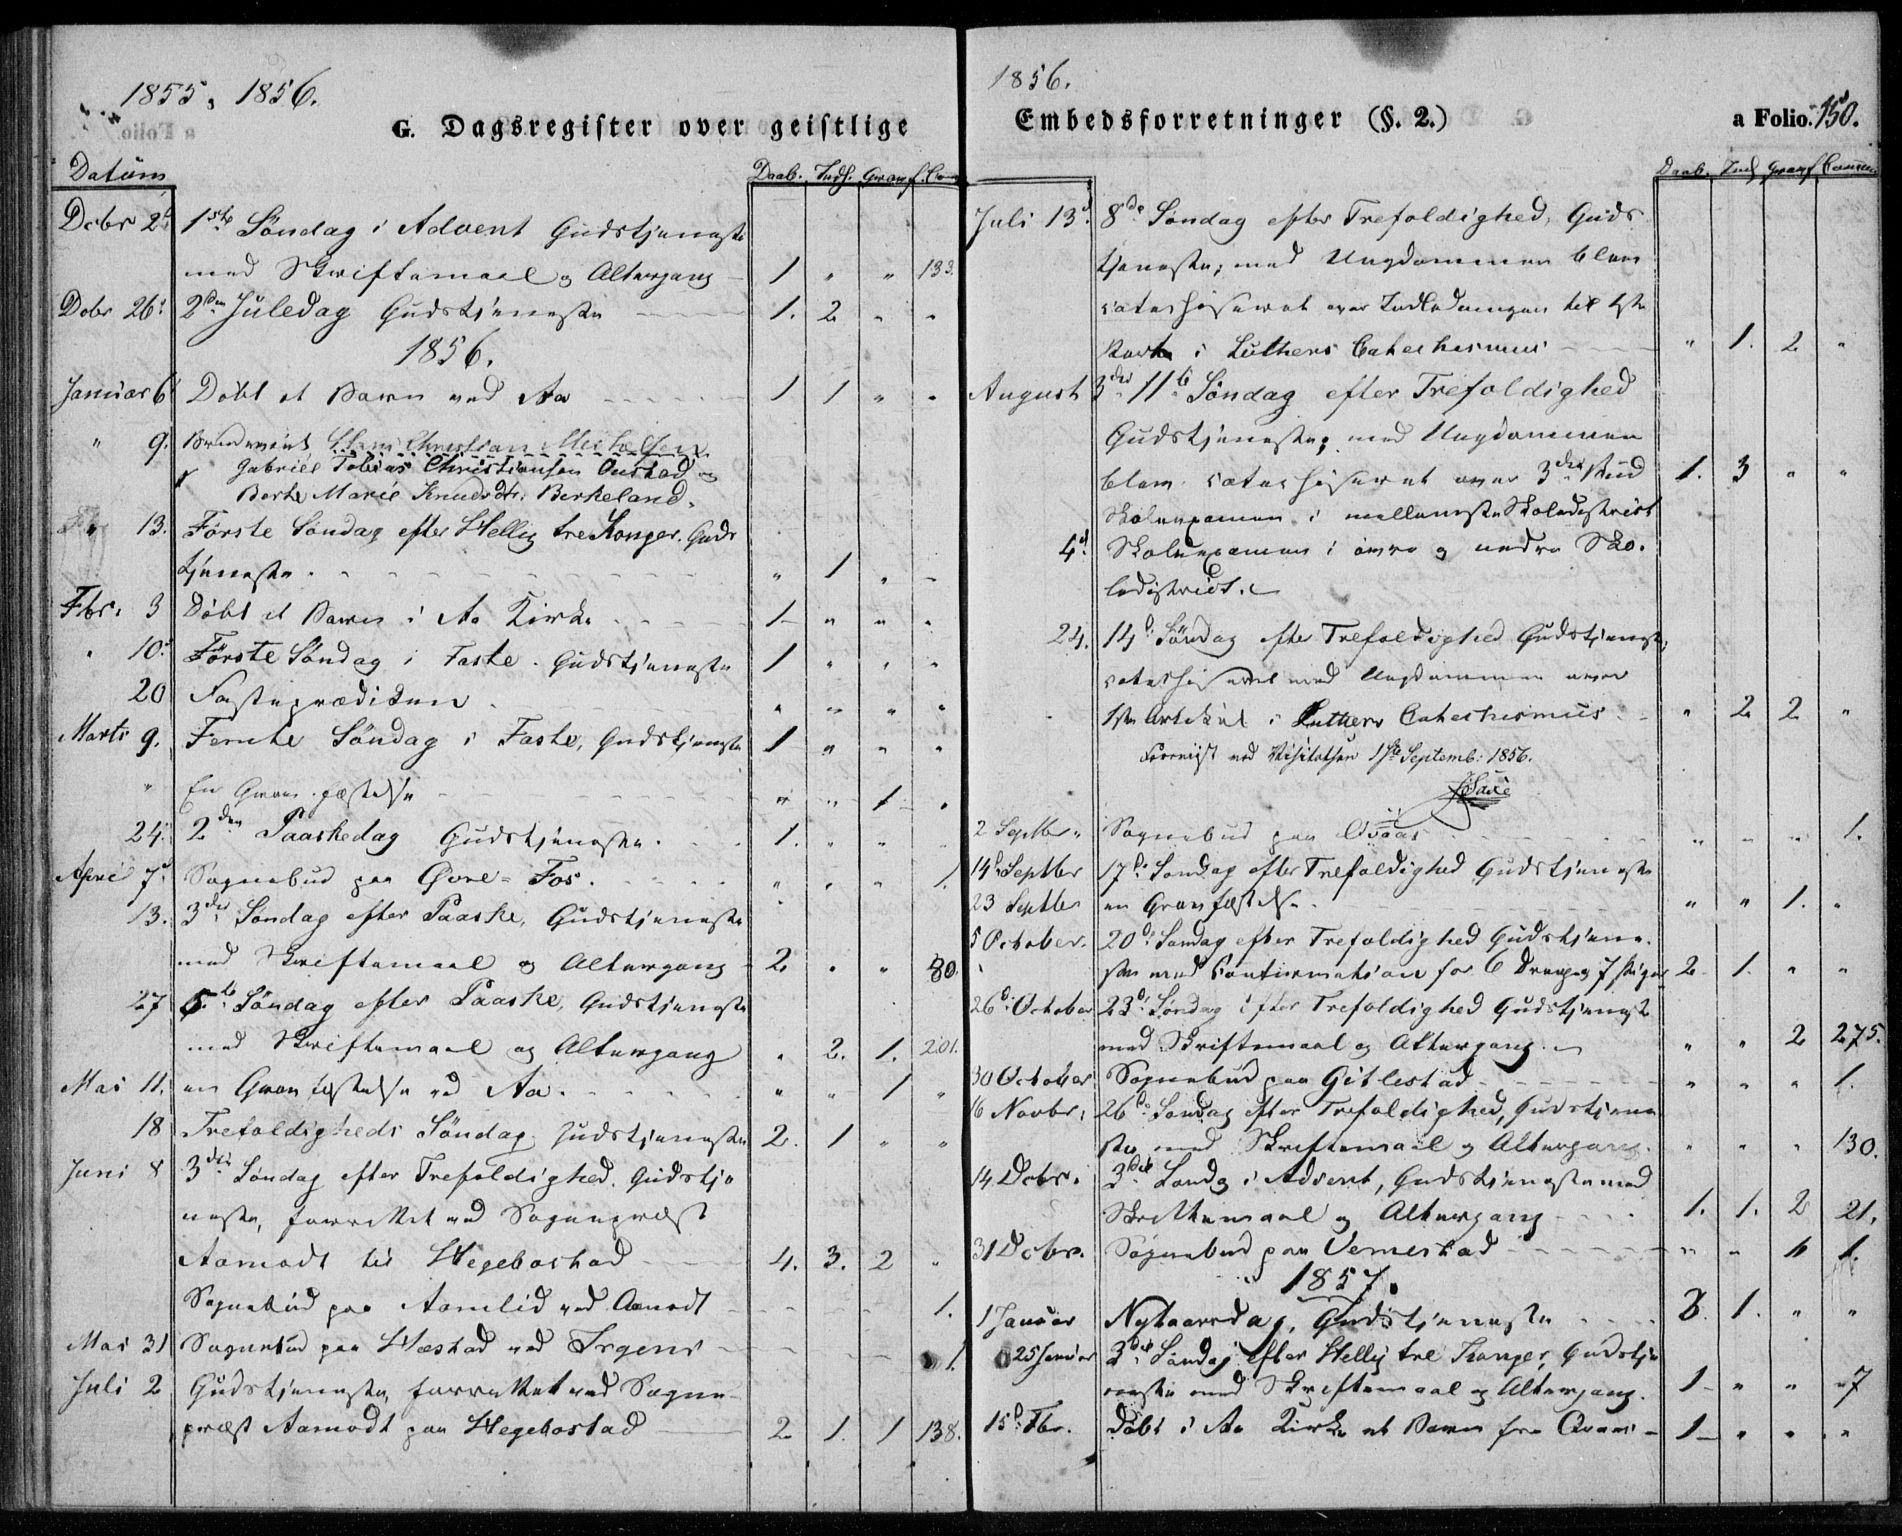 1855, 1856.
G. Dagsregister over geistlige
Datum
Daab. Inds. Gravf. Com
Dcbr 2d 1ste Søndag i Advent Gudstjeneste
med Skriftemaal og Altergang 1 " " 133.
Dcbr 26d 2den Juledag Gudstjeneste 1. 2 " "
1856.
Januar 6 Døbt et Barn ved Aa 1 1 " "
" 9. Brudeviet
Gabriel Tobias Christiansen Oustad og
Berte Marie Knudsdtr: Berkeland.
" 13. Første Søndag efter Hellig tre Konger. Guds
tjeneste. " 1 " "
Fbr. 3 Døbt et Barn i Aa Kirke 1 " " "
" 10d Første Søndag i Faste. Gudstjeneste 1 " " "
20 Fasteprædiken " " " "
Marts 9. Femte Søndag i Faste, Gudstjeneste 1 " " "
" En Gravfæstelse " " 1 "
24. 2den Paaskedag Gudstjeneste. 1. " " "
April 7d Sognebud paa Øvre-Fos. " " " 1.
13. 3die Søndag efter Paaske, Gudstjeneste
med Skriftemaal og Altergang 2 " " 80.
27 5te Søndag efter Paaske, Gudstjeneste
med Skriftemaal og Altergang " 2. 1. 201.
Mai 11. en Gravfæstelse ved Aa. " " 1 "
18 Trefoldigheds Søndag, Gudstjeneste 2. 1 " "
Juni 8 3die Søndag efter Trefoldighed. Gudstje
neste, forrettet ved Sognepræst
Aamodt til Hegebostad 4. 3. 2 "
Sognebud paa Aamlid ved Aamodt 1.
Mai 31 Sognebud paa Hæstad ved Irgens 1.
Juli 2 Gudstjeneste, forrettet ved Sogne-
præst Aamodt paa Hegebostad 2 1. 1 138.
1856.
Embedsforretninger (§. 2.) a Folio. 150.
Daab. Inds Gravf Comm
Juli 13d. 8de Søndag efter Trefoldighed, Guds
tjeneste; med Ungdommen blev
catechiseret over Indledningen til 1ste
Part i Luthers Catechismus " 1. 2 "
August 3die 11te Søndag efter Trefoldighed
Gudstjeneste; med Ungdommen
blev catechiseret over 3die Bud 1. 3 " "
Skoleexamen i mellemste Skoledistrict
4d. Skoleexamen i øvre og nedre Sko-
ledistrict.
24. 14d Søndag efter Trefoldighed Gudstjeneste,
catechiseret med Ungdommen over
1ste Artikel i Luthers Catechismus " 2 2 "
Foreviist ved Visitatsen 1ste Septemb: 1856.
2 Septbr. Sognebud paa " " " 1.
14d Septbr 17de Søndag efter Trefoldighed Gudstjeneste
23 Septbr en Gravfæstelse. " " 1. "
5 October. 20d Søndag efter Trefoldighed Gudstjene-
ste med Confirmation for 6 Drenge og 7 Piger 2 1. " "
26d October 23d Søndag efter Trefoldighed Gudstjeneste
med Skriftemaal og Altergang. " " 2 275.
30 October Sognebud paa Gitlestad " " " 1.
16 Novbr. 26d Søndag efter Trefoldighed, Gudstjene
ste med Skriftemaal og Altergang. " " " 130.
14 Dcbr. 3die Søndag i Advent, Gudstjeneste med
Skriftemaal og Altergang 1. 1. 2 21.
31 Dcbr. Sognebud paa Vemestad " " " 1.
1857.
1 Januar Nytaarsdag, Gudstjeneste 3. 1. " "
25 Januar 3die Søndag efter Hellig tre Konger, Gudstje
neste med Skriftemaal og Altergang. 1 " " 7
15d Fbr. Døbt i Aa Kirke et Barn fra 1 " " "